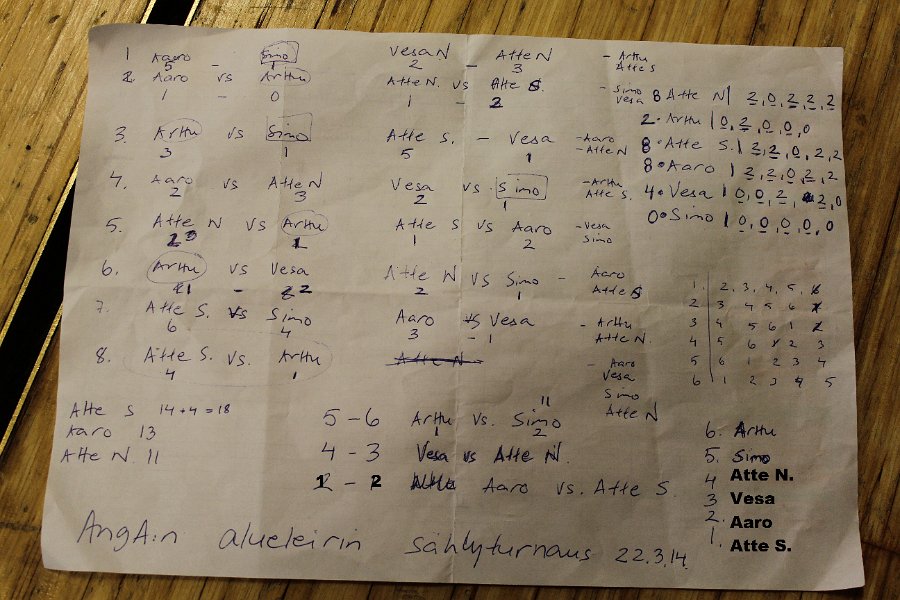 1 Aaro - Simo Vesa N - Atte N - Arttu
5 1 2 3 Atte S
2. Aaro vs Arttu Atte N. vs Atte S. - Simo
1 - 0 1 - 2 Vesa
8 Atte N | 2, 0, 2, 2, 2
2 • Arttu | 0, 2, 0, 0, 0
3. Arttu vs Simo Atte S. - Vesa - Aaro
3 1 5 1 - Atte N
8 • Atte S. | 2, 2, 0, 2, 2
8 • Aaro | 2, 2, 0, 2, 2
4. Aaro vs Atte N Vesa vs. Simo - Arttu
2 3 2 1 Atte S.
4 • Vesa | 0, 0, 2, 2, 0
0 • Simo | 0, 0, 0, 0, 0
5. Atte N vs Arttu Atte S vs Aaro - Vesa
1 1 2 Simo
6. Arttu vs Vesa Atte N vs Simo - Aaro
1 - 2 2 1 Atte S
7. Atte S. vs Simo Aaro vs Vesa - Arttu
6 4 3 - 1 Atte N.
8. Atte S. vs. Arttu Atte N - Aaro
4 1 Vesa
Simo
Atte N
1. 2, 3, 4, 5, 6
2 3 4 5 6 1
3 4 5 6 1 2
4 5 6 1 2 3
5 6 1 2 3 4
6 1 2 3 4 5
Atte S 14+4=18
Aaro 13
Atte N 11
11
5-6 Arttu vs. Simo
1 2
4-3 Vesa vs Atte N.
1-2 Aaro vs. Atte S.
6. Arttu
5. Simo
4 Atte N.
3 Vesa
2. Aaro
1. Atte S.
AngA:n alueleirin sählyturnaus 22.3.14